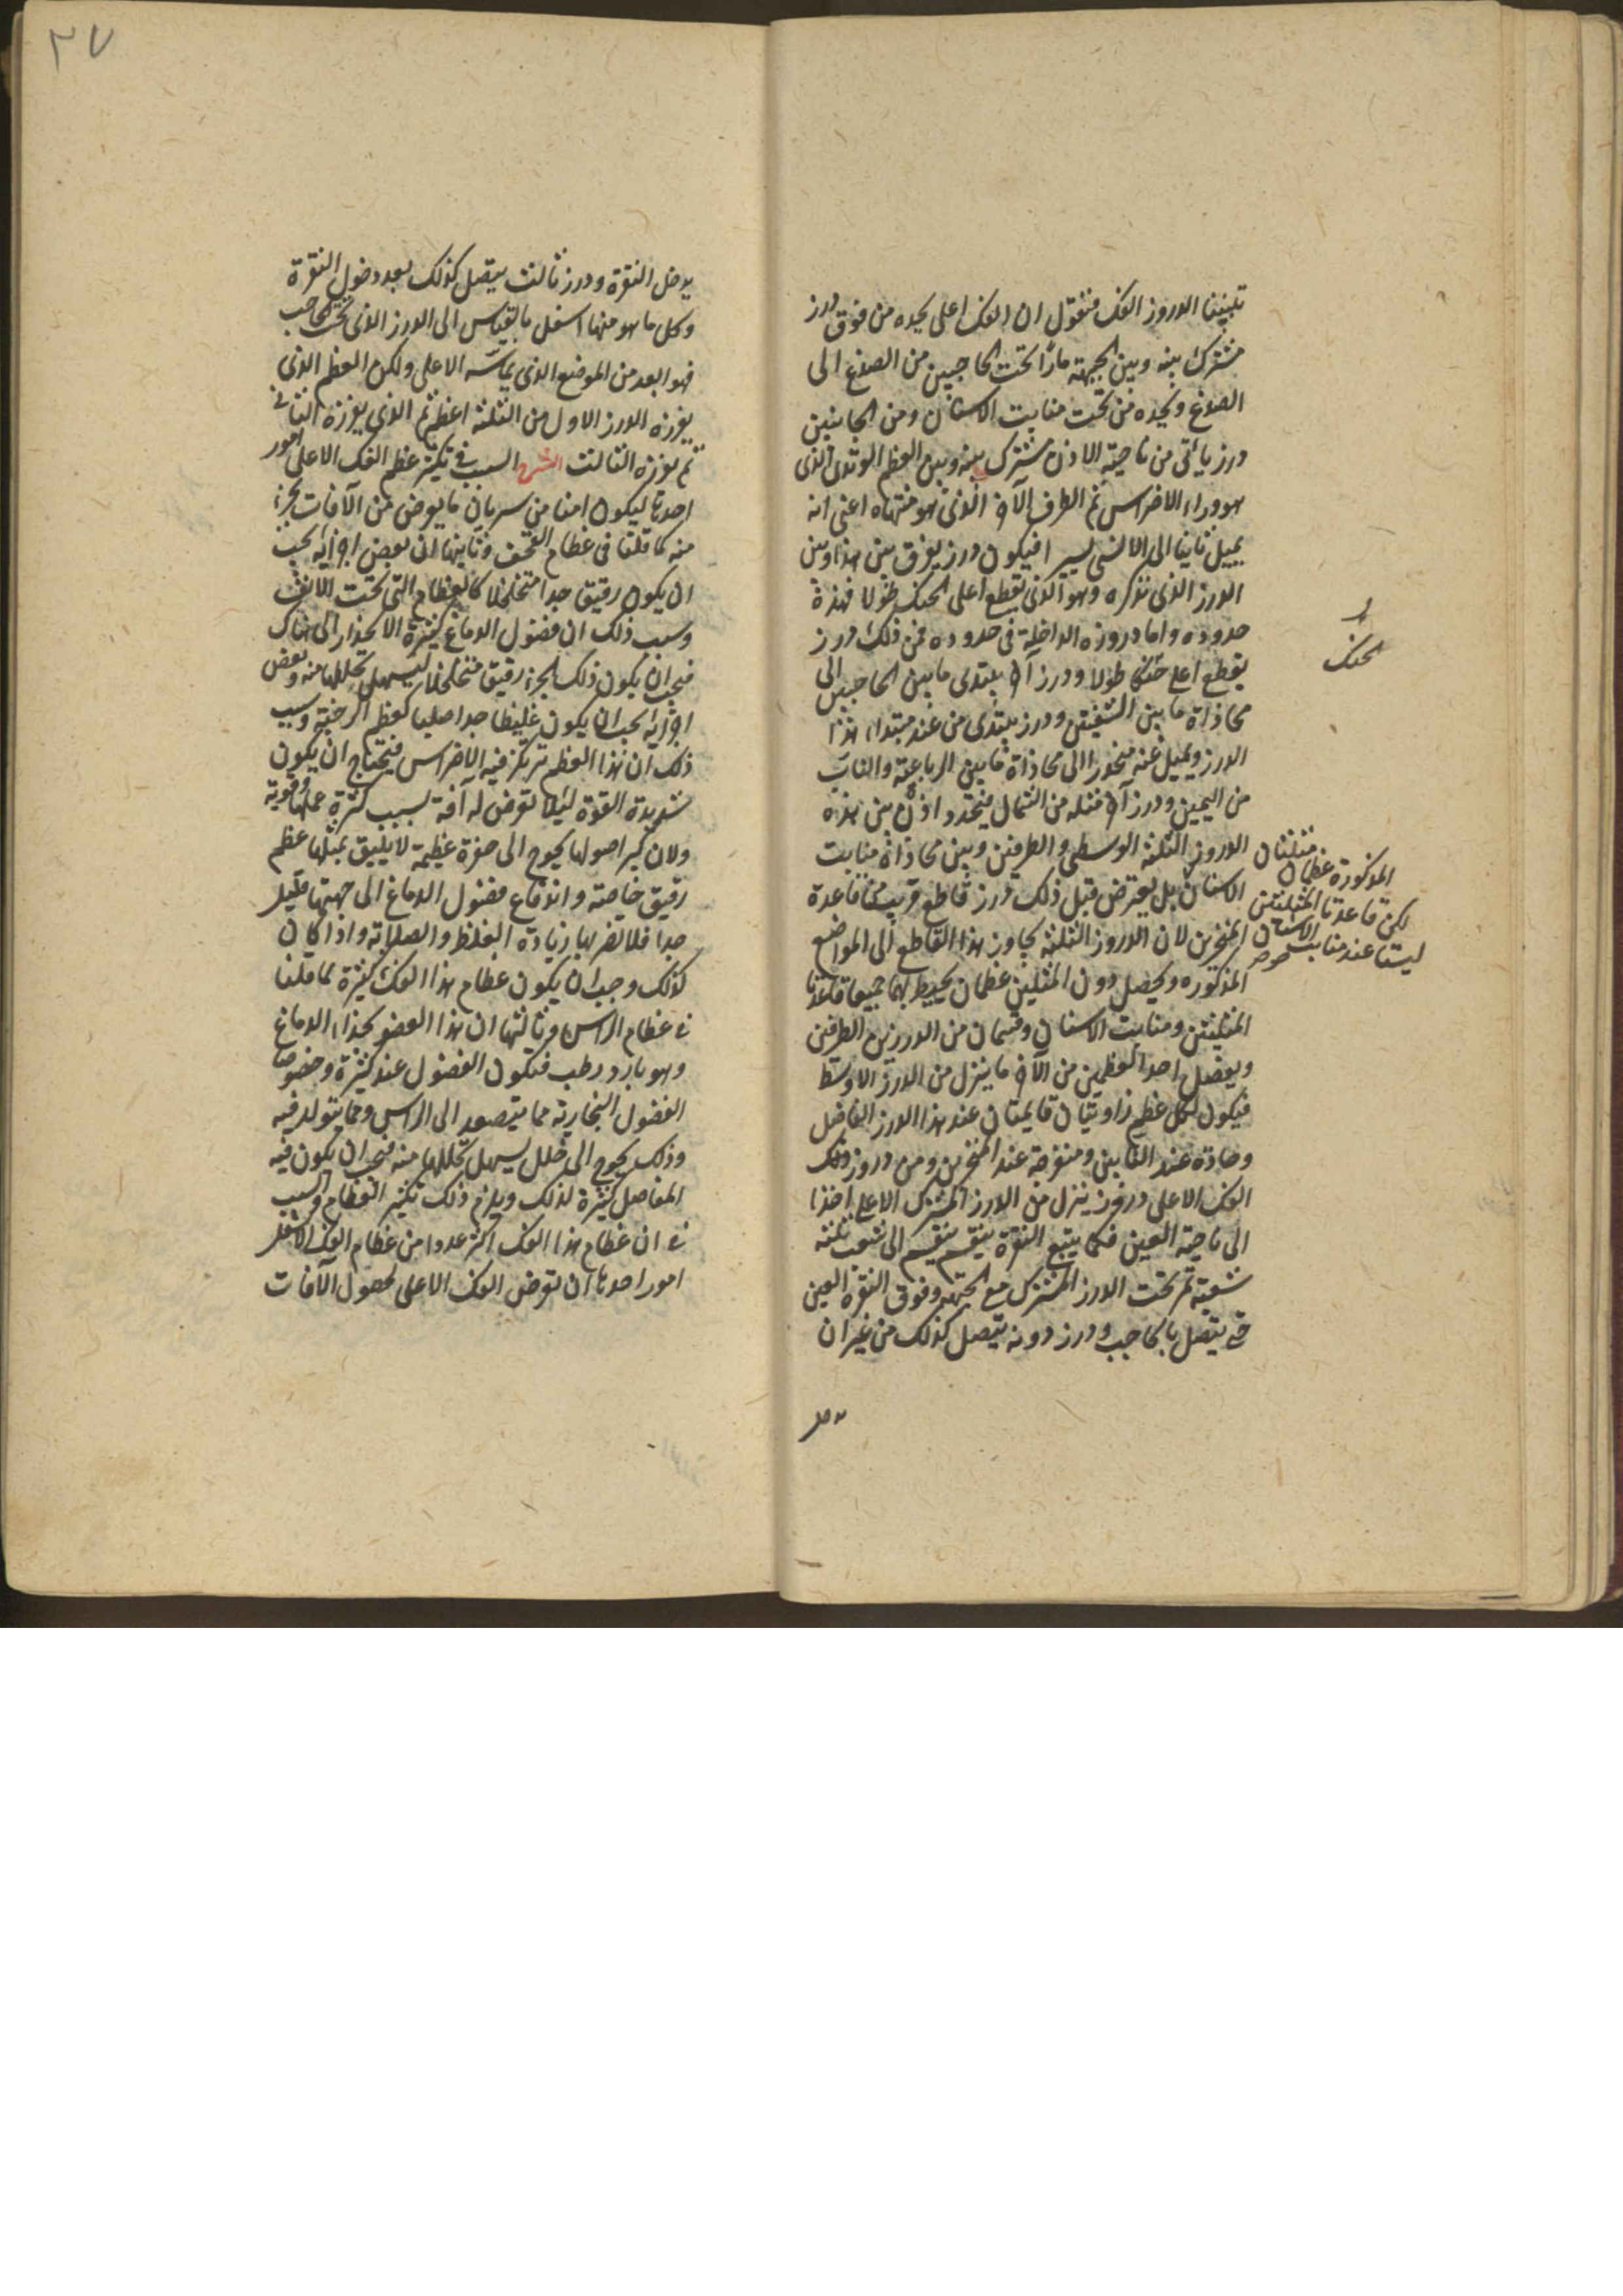 تبيننا الدروز الفك فنقول ان الفك اعلى يحده من فوق درز
مشترك بينه وبين الجبهة مارا تحت الحاجبين من الصدغ الى
الصدغ ويحده من تحت منابت الاسنان ومن الجانبين
درز ياتى من ناحية الاذن مشترك بينه وبين العظم الوتدى الذى
هو وراء الاضراس ثم الطرف الآخر الذى هو منتهاه اعنى انه
يميل ثانيا الى الانسى يسيرا فيكون درز يفرق بين هذا وبين
الدرز الذى نذكره وهو الذى يقطع اعلى الحنك طولا فهذه
حدوده واما دروزه الداخلة فى حدوده فمن ذلك درز
يقطع اعلى حنكا طولا ودرز آخر يبتدى ما بين الحاجبين الى
محاذاة ما بين الثنيتين ودرز يبتدى من عند مبتداء هذا
الدرز ويميل عنه منحدرا الى محاذاة ما بين الرباعية والناب
من اليمين ودرز آخر مثله من الشمال فيتحدد اذن بين هذه
الدروز الثلثة الوسطى والطرفين وبين محاذاة منابت
الاسنان بل يعترض قبل ذلك درز قاطع قريب من قاعدة
المنخرين لان الدروز الثلثة يجاوز هذا القاطع الى المواضع
المذكوره ويحصل دون المثلثين عظمان يحيط بهما جميعا قاعدتا
المثلثتين ومنابت الاسنان وقسمان من الدرزين الطرفين
ويفصل احد العظمين من الآخر ما ينزل من الدرز الاوسط
فيكون لكل عظم زاويتان قايمتان عند هذا الدرز الفاصل
وحادة عند النابين ومنفرجة عند المنخرين ومن دروز ذلك
الفك الاعلى درز ينزل من الدرز المشترك الاعلى اخذا
الى ناحية العين فكما يبتع النقرة ينقسم ينقسم الى شعب ثلثة
شعبة تمر تحت الدرز المشترك مع الجبهة وفوق النقره العين
حتى يتصل بالحاجب ودرز دونه يتصل كذلك من غير ان
الحنك
مثلثتان
المذكورة عظمان
لكن قاعدتا المثلثتين
ليستا عند منابت الاسنان
٣٧
يدخل النقرة ودرز ثالث يتصل كذلك بعد دخول النقرة
وكل ما هو منها اسفل بالقياس الى الدرز الذى تحت الحاجب
فهو ابعد من الموضع الذى يماسه الاعلى ولكن العظم الذى
يفرزه الدرز الاول من الثلثة اعظم ثم الذى يفرزه الثانى
ثم يفرزه الثالث الشرح السبب فى تكثير عظم الفك الاعلى امور
احدها ليكون امنا من سريان ما يعرض من الآفات بجزء
منه كما قلنا فى عظام القحف وثانيها ان بعض اجزائه يجب
ان يكون رقيق جدا متخلخلا كالعظام التى تحت الانف
وسبب ذلك ان فضول الدماغ كثيرة الانحدار الى هناك
فيجب ان يكون ذلك الجزء رقيق متخلخلا ليسهل تحللها منه وبعض
اجزائه يجب ان يكون غليظا جدا صلبا كعظم الوجنة وسبب
ذلك ان هذا العظم ترتكز فيه الاضراس فيحتاج ان يكون
شديدة القوة لئلا تعرض له آفة بسبب كثرة عملها وقوته
ولان كبر اصولها يحوج الى حفرة عظيمة لا يليق بمثلها عظم
رقيق خاصة واندفاع فضول الدماغ الى جهتها قليل
جدا فلا تضر بها زيادة الغلظ والصلابة واذا كان
كذلك وجب ان يكون عظام هذا الفك كثيرة لما قلنا
فى عظام الراس وثالثها ان هذا العضو بحذاء الدماغ
وهو بارد رطب فتكون الفضول عنده كثيرة وخصوصا
الفضول البخارية مما يتصعد الى الراس ومما يتولد فيه
وذلك يحوج الى خلل يسهل تحللها منه فيجب ان يكون فيه
المفاصل كثيرة لذلك ويلزم ذلك تكثير العظام والسبب
فى ان عظام هذا الفك اكثر عددا من عظام الفك الاسفل
امور احدها ان تعرض الفك الاعلى لحصول الآفات